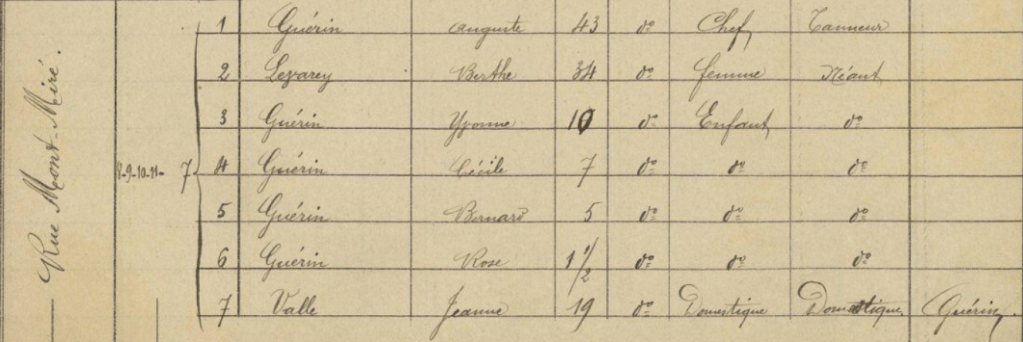 Rue Mont-Miré.
8-9-10-11- 7
1 Guérin Auguste 43 do Chef Tanneur
2 Berthe 34 do femme Néant
3 Guérin Yvonne 10 do Enfant do
4 Guérin Cécile 7 do do do
5 Guérin Bernard 5 do do do
6 Guérin Rose 1 1/2 do do do
7 Valle Jeanne 19 do Domestique Domestique. Guérin